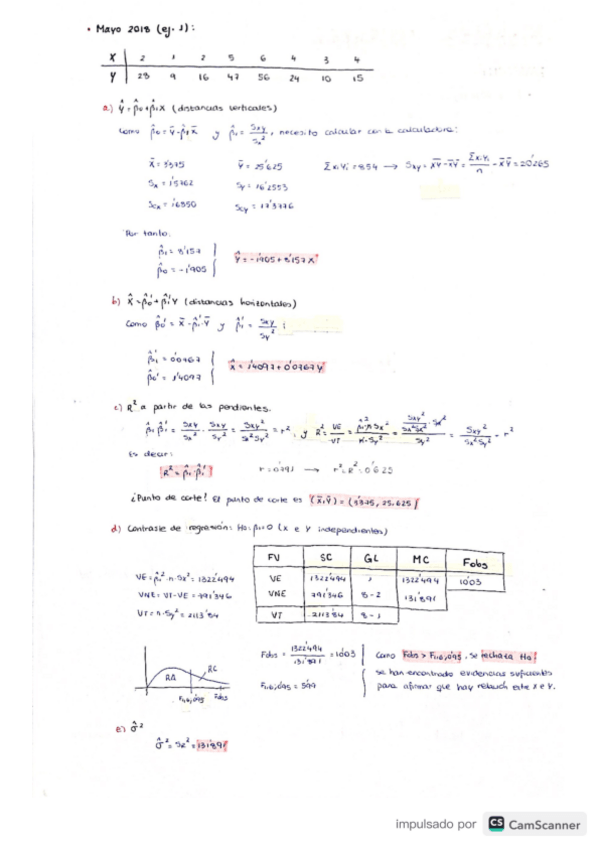 • Mayo 2018 (ej. 1):
X 2 1 2 5 6 4 3 4
Y 23 9 16 47 56 24 10 15
a) Ŷ=β̂₀+β̂₁X (distancias verticales)
Como β̂₀=Ȳ-β̂₁X̄ y β̂₁=Sxy/Sx², necesito calcular con la calculadora:
X̄=3'375 Ȳ=25'625 ΣxiYi=854 → Sxy=X̄Ȳ-X̄Ȳ=ΣxiYi/n-X̄Ȳ=20'265
Sx=1'5762 Sy=16'2553
Scx=1'6850 Scy=17'3776
Por tanto:
β̂₁=8'157
β̂₀=-1'905
Ŷ=-1'905+8'157X
b) X̂=β̂₀'+β̂₁'Y (distancias horizontales)
Como β̂₀'=X̄-β̂₁'Ȳ y β̂₁'=Sxy/Sy²:
β̂₁'=0'0767
β̂₀'=1'4097
X̂=1'4097+0'0767Y
c) R² a partir de las pendientes.
β̂₁β̂₁'=Sxy/Sx²·Sxy/Sy²=Sxy²/Sx²Sy²=r², y R²=VE/VT=β̂₁²·n·Sx²/n·Sy²=Sxy²/Sx²Sy²=r²
Es decir:
R²=β̂₁·β̂₁' r=0'791 → r²=R²=0'625
¿Punto de corte? El punto de corte es (X̄,Ȳ)=(3'375, 25.625)
d) Contraste de regresión: H₀:β₁=0 (x e y independientes)
FV SC GL MC Fobs
VE 1322'494 1 1322'494 10'03
VNE 791'346 8-2 131'891
VT 2113'84 8-1
VE=β̂₁²·n·Sx²=1322'494
VNE=VT-VE=791'346
VT=n·Sy²=2113'84
RA RC
F₁,₆,₀'₉₅ Fobs
Fobs=1322'494/131'891=10'03
F₁,₆,₀'₉₅=5'99
Como Fobs>F₁,₆,₀'₉₅, se rechaza H₀:
se han encontrado evidencias suficientes
para afirmar que hay relación entre x e y.
e) σ̂²
σ̂²=SR²=131'891
impulsado por CS CamScanner